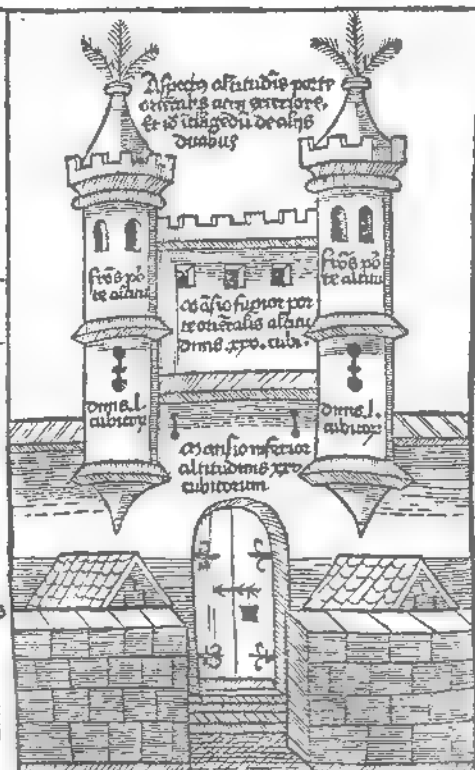 Aspectꝰ altitudīs porte
oriētalis atrij exteriore.
Et iō ītligēdū de alijs
duabus
frōs pō
te altitu
dinis l.
cubitoꝝ
māsio suꝑior por
te oriētalis altitu
dinis xxv. cubi.
frōs pō
te altitu
dinis l.
cubitoꝝ
Mansio inferior
altitudinis xxv
cubitorum